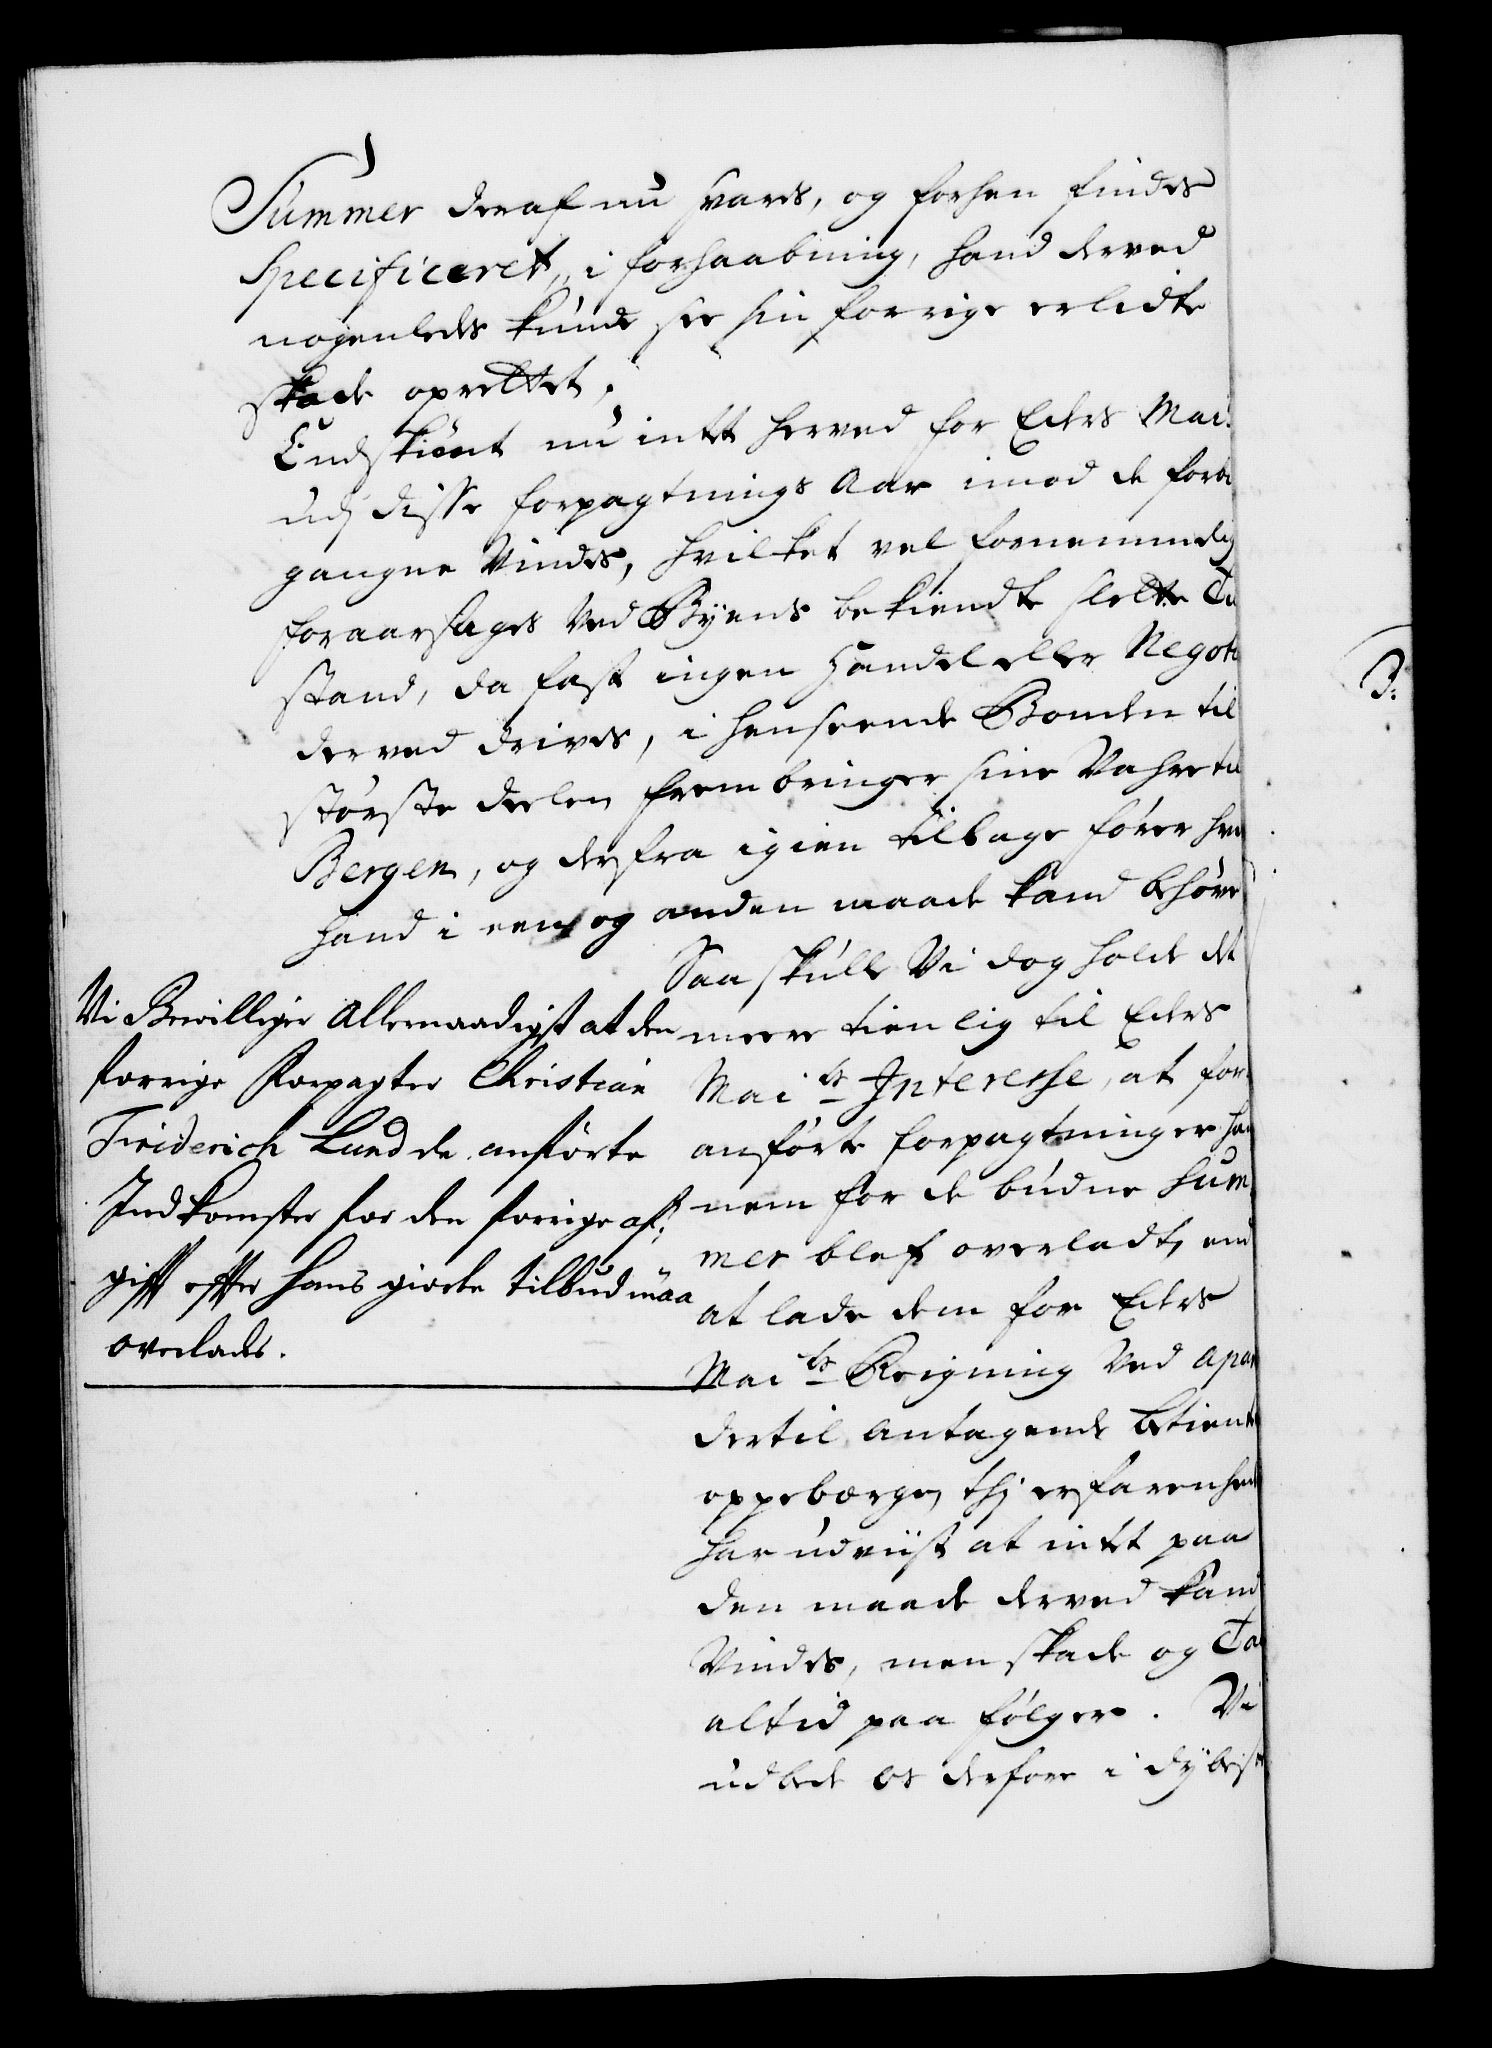 Summer deraf nu svares, og forhen findes
Specificeret, i forhaabning, hand derved
nogenledes kunde see sin forrige erlidte
skade oprettet.
Endskiönt nu intet herved for Eders Mai.
udj disse forpagtnings Aar imod de forbi
gangne Vindes, hvilket vel fornemmelig
foraarsages ved Byens bekiendte slette Til
stand, da fast ingen Handel eller Negoti
derved drives, i henseende Bonden til
störste deelen frembringer sine Vahre til
Bergen, og derfra igien tilbage förer hvad
hand i een og anden maade kand behöve
Saa skulle Vi dog holde det
meere tienlig til Eders
Maits Interesse, at for
anförte forpagtninger han
nem for de budne Sum
mer blef overladt, end
at lade dem for Eders
Maits Reigning ved apar
dertil antagende betiente
oppebærge, thj erfarenhed
har udviist at intet paa
den maade derved kand
Vindes, men skade og Tab
altid paa fölger. Vi
udbede os derfore i dybeste
Vi Bevilliger Allernaadigst at den
forrige Forpagter Christian
Friderich Lund de anförte
Indkomster for den forrige af-
gifft effter hans giorte tilbud maa
overlades.